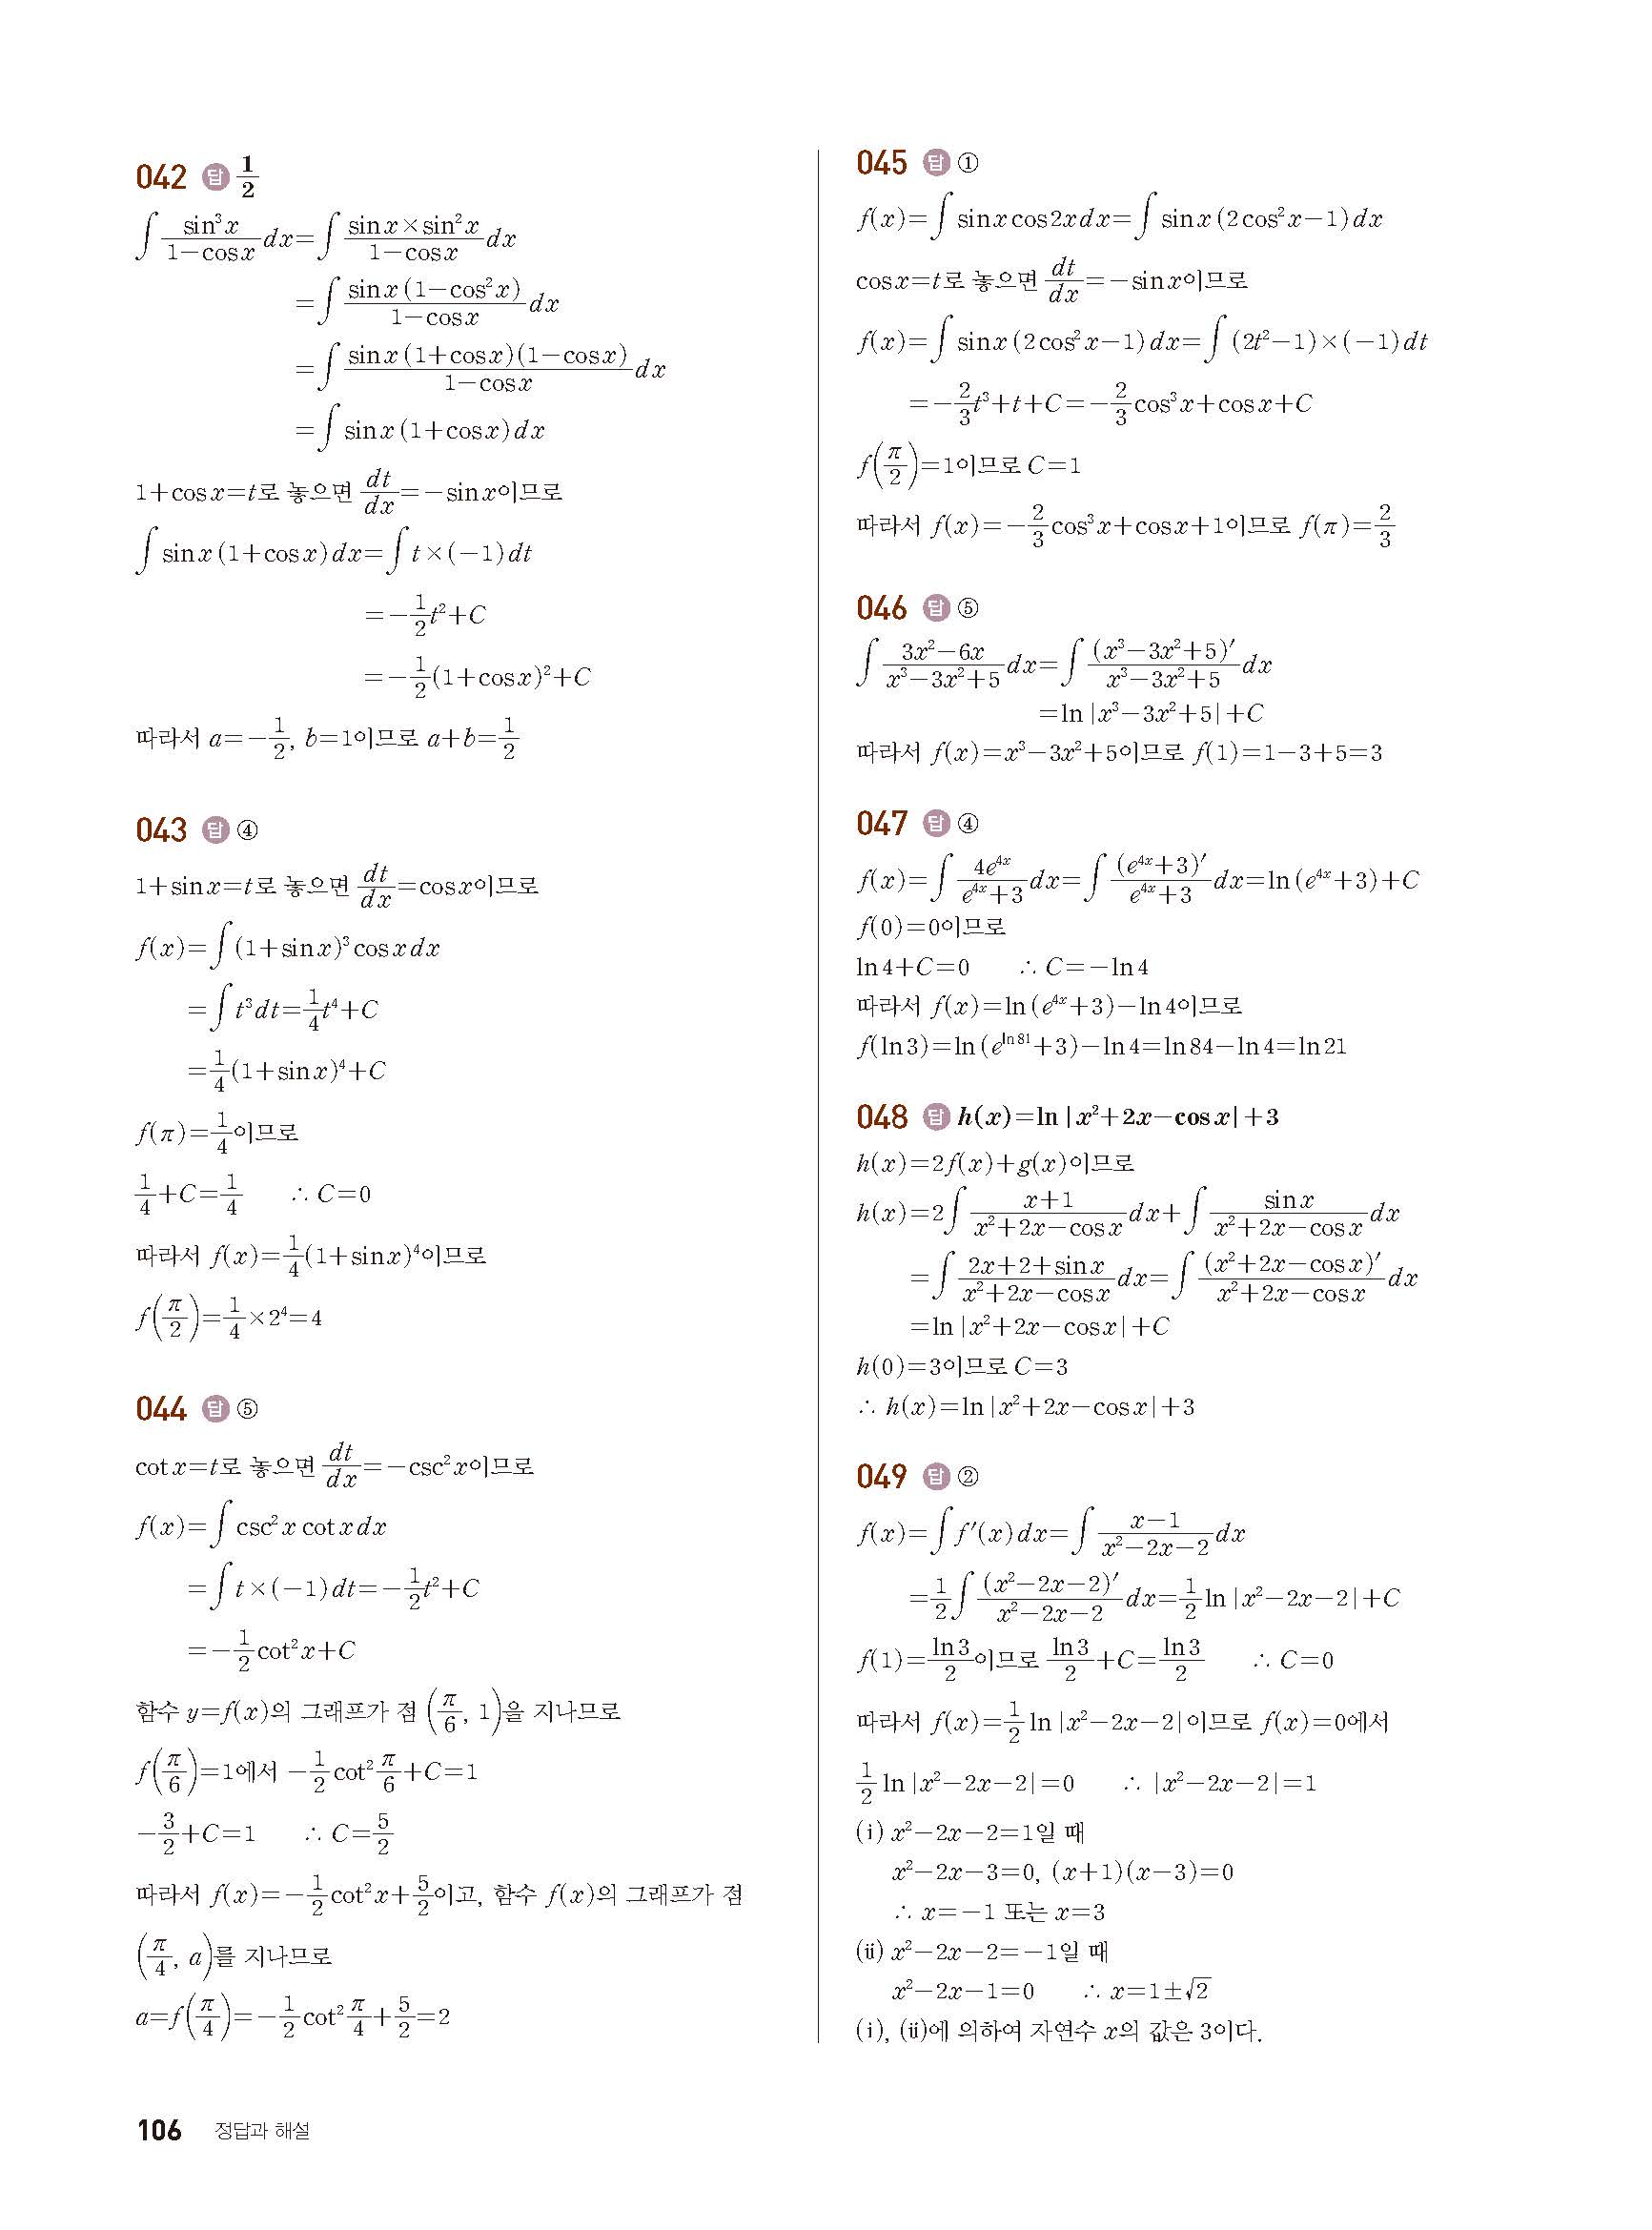 042 답 1/2
∫ sin³x/(1−cosx) dx=∫ (sinx×sin²x)/(1−cosx) dx
=∫ sinx(1−cos²x)/(1−cosx) dx
=∫ sinx(1+cosx)(1−cosx)/(1−cosx) dx
=∫ sinx(1+cosx)dx
1+cosx=t로 놓으면 dt/dx=−sinx이므로
∫ sinx(1+cosx)dx=∫ t×(−1)dt
=−1/2 t²+C
=−1/2(1+cosx)²+C
따라서 a=−1/2, b=1이므로 a+b=1/2
043 답 ④
1+sinx=t로 놓으면 dt/dx=cosx이므로
f(x)=∫ (1+sinx)³cosxdx
=∫ t³dt=1/4 t⁴+C
=1/4(1+sinx)⁴+C
f(π)=1/4이므로
1/4+C=1/4 ∴ C=0
따라서 f(x)=1/4(1+sinx)⁴이므로
f(π/2)=1/4×2⁴=4
044 답 ⑤
cotx=t로 놓으면 dt/dx=−csc²x이므로
f(x)=∫ csc²xcotxdx
=∫ t×(−1)dt=−1/2 t²+C
=−1/2 cot²x+C
함수 y=f(x)의 그래프가 점 (π/6, 1)을 지나므로
f(π/6)=1에서 −1/2 cot² π/6+C=1
−3/2+C=1 ∴ C=5/2
따라서 f(x)=−1/2 cot²x+5/2이고, 함수 f(x)의 그래프가 점
(π/4, a)를 지나므로
a=f(π/4)=−1/2 cot² π/4+5/2=2
045 답 ①
f(x)=∫ sinxcos2xdx=∫ sinx(2cos²x−1)dx
cosx=t로 놓으면 dt/dx=−sinx이므로
f(x)=∫ sinx(2cos²x−1)dx=∫ (2t²−1)×(−1)dt
=−2/3 t³+t+C=−2/3 cos³x+cosx+C
f(π/2)=1이므로 C=1
따라서 f(x)=−2/3 cos³x+cosx+1이므로 f(π)=2/3
046 답 ⑤
∫ (3x²−6x)/(x³−3x²+5) dx=∫ (x³−3x²+5)′/(x³−3x²+5) dx
=ln|x³−3x²+5|+C
따라서 f(x)=x³−3x²+5이므로 f(1)=1−3+5=3
047 답 ④
f(x)=∫ 4e⁴ˣ/(e⁴ˣ+3) dx=∫ (e⁴ˣ+3)′/(e⁴ˣ+3) dx=ln(e⁴ˣ+3)+C
f(0)=0이므로
ln4+C=0 ∴ C=−ln4
따라서 f(x)=ln(e⁴ˣ+3)−ln4이므로
f(ln3)=ln(e^(ln81)+3)−ln4=ln84−ln4=ln21
048 답 h(x)=ln|x²+2x−cosx|+3
h(x)=2f(x)+g(x)이므로
h(x)=2∫ (x+1)/(x²+2x−cosx) dx+∫ sinx/(x²+2x−cosx) dx
=∫ (2x+2+sinx)/(x²+2x−cosx) dx=∫ (x²+2x−cosx)′/(x²+2x−cosx) dx
=ln|x²+2x−cosx|+C
h(0)=3이므로 C=3
∴ h(x)=ln|x²+2x−cosx|+3
049 답 ②
f(x)=∫ f′(x)dx=∫ (x−1)/(x²−2x−2) dx
=1/2∫ (x²−2x−2)′/(x²−2x−2) dx=1/2 ln|x²−2x−2|+C
f(1)=ln3/2이므로 ln3/2+C=ln3/2 ∴ C=0
따라서 f(x)=1/2 ln|x²−2x−2|이므로 f(x)=0에서
1/2 ln|x²−2x−2|=0 ∴ |x²−2x−2|=1
(ⅰ) x²−2x−2=1일 때
x²−2x−3=0, (x+1)(x−3)=0
∴ x=−1 또는 x=3
(ⅱ) x²−2x−2=−1일 때
x²−2x−1=0 ∴ x=1±√2
(ⅰ), (ⅱ)에 의하여 자연수 x의 값은 3이다.
106 정답과 해설